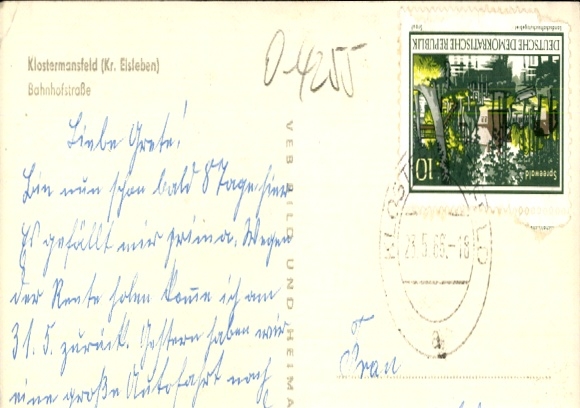 Klostermansfeld (Kr. Eisleben)
Bahnhofstraße
O-4255
Liebe Grete!
Bin nun schon bald 8 Tage hier
Es gefällt mir prima. Wegen
der Rente holen komme ich am
31.5. zurück. Gestern haben wir
eine große Autofahrt nach
VEB BILD UND HEIMA
DEUTSCHE DEMOKRATISCHE REPUBLIK
Landschaftsschutzgebiet
Spreewald
10
KLOST
LD
.5.69.-18
a
Frau